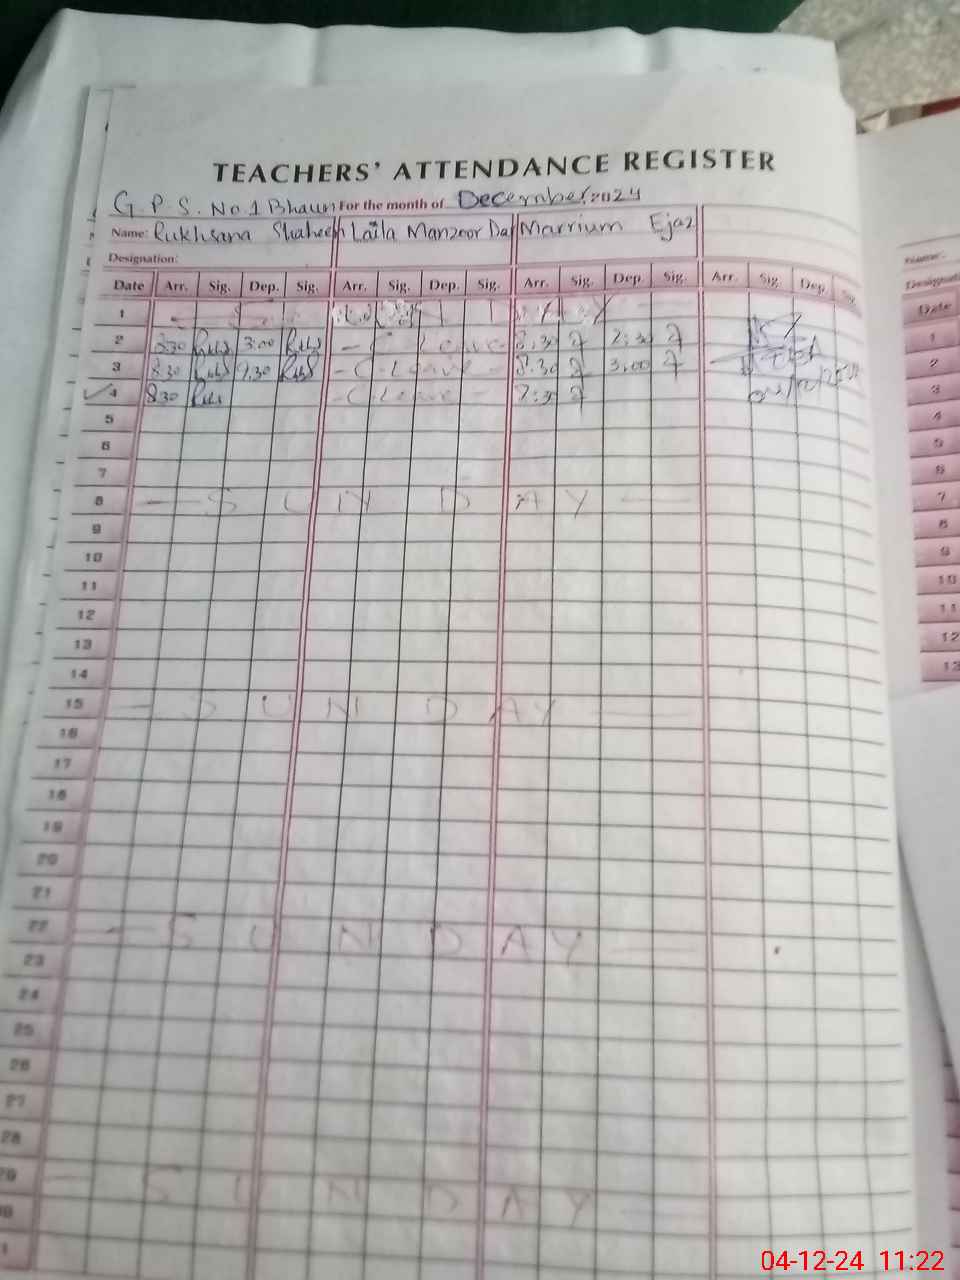 TEACHERS' ATTENDANCE REGISTER
G.P.S. No.1 Bhaun For the month of December 2024
Name: Rukhsana Shaheen Laila Manzoor Dar Marrium Ejaz
Designation:
Date Arr. Sig. Dep. Sig. Arr. Sig. Dep. Sig. Arr. Sig. Dep. Sig. Arr. Sig. Dep. Sig.
1
2 8:30 3:00 - C Leave - 8:30
3 8.30 - C Leave - 8.30 3.00
4 830 - C Leave -
5
6
7
8 — S U N D A Y —
9
10
11
12
13
14
15 — S U N D A Y —
16
17
18
19
20
21
22 — S U N D A Y —
23
24
25
26
27
28
29 — S U N D A Y —
Name:
Designati
Date
1
2
3
4
5
6
7
8
9
10
11
12
13
04-12-24 11:22